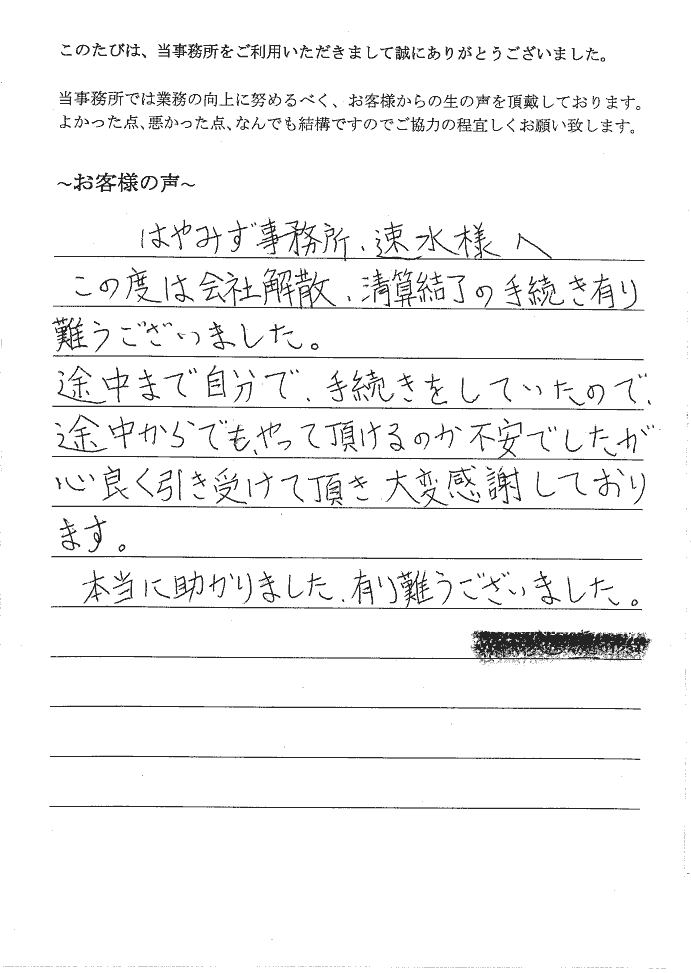 このたびは、当事務所をご利用いただきまして誠にありがとうございました。
当事務所では業務の向上に努めるべく、お客様からの生の声を頂戴しております。
よかった点、悪かった点、なんでも結構ですのでご協力の程宜しくお願い致します。
~お客様の声~
はやみず事務所、速水様へ
この度は会社解散、清算結了の手続き有り
難うございました。
途中まで自分で、手続きをしていたので、
途中からでも、やって頂けるのか不安でしたが
心良く引き受けて頂き大変感謝しており
ます。
本当に助かりました、有り難うございました。